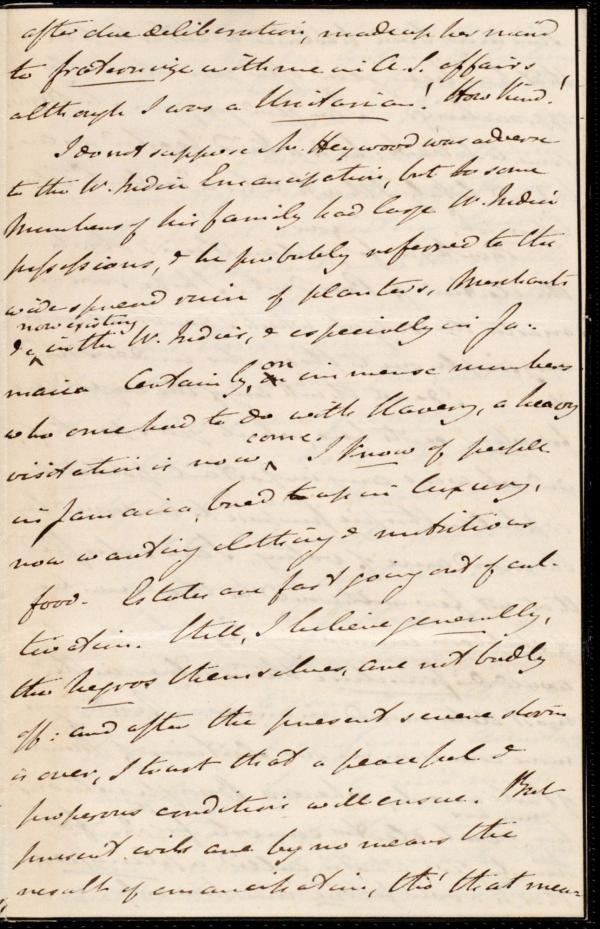 after due deliberation, made up her mind
to fraternize with me in A.S. affairs
although I was a Unitarian! How kind!
I do not suppose Mr. Heywood was adverse
to the W. India Emancipation, but so some
members of his family had large W. India
possessions, & he probably referred to the
wide spread ruin of planters, Merchants
&c now existing in the W. Indies, & especially in Ja-
maica Certainly, on immense numbers
who once had to do with slavery, a heavy
visitation is now come. I know of people
in Jamaica, bred up in luxury,
now wanting clothing & nutritious
food. Estates are fast going out of cul-
tivation. Still, I believe generally,
the negros themselves, are not badly
off: and after the present severe storm
is over, I trust that a peaceful &
properous condition will ensue. But
present evils are by no means the
result of emancipation, tho' that mea-